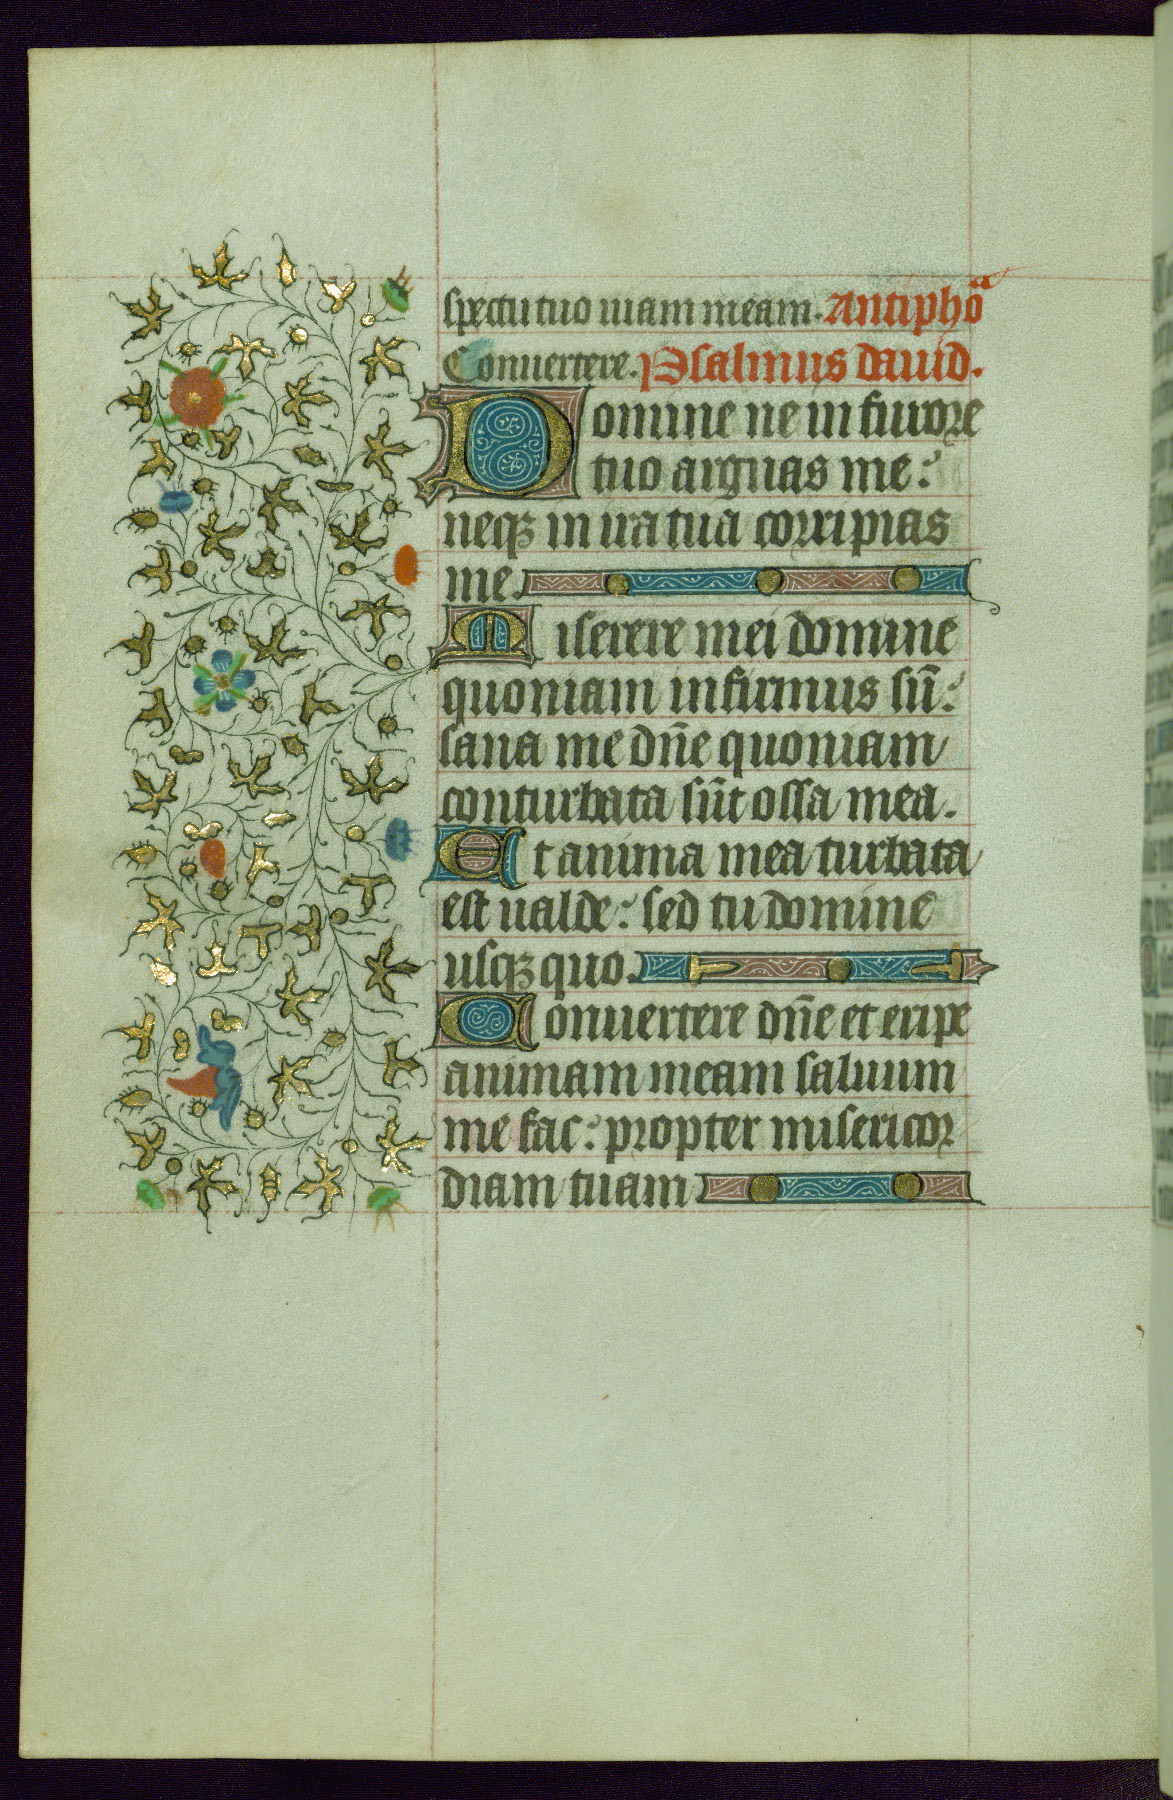 spectu tuo uiam meam. Antipho̅a
Conuertere. Psalmus dauid.
Domine ne in furore
tuo arguas me:
neqꝫ in ira tua corripias
me.
Miserere mei domine
quoniam infirmus su̅:
sana me dn̅e quoniam
conturbata su̅t ossa mea.
Et anima mea turbata
est ualde: sed tu domine
usqꝫ quo.
Conuertere dn̅e et eripe
animam meam saluum
me fac: propter misericor
diam tuam